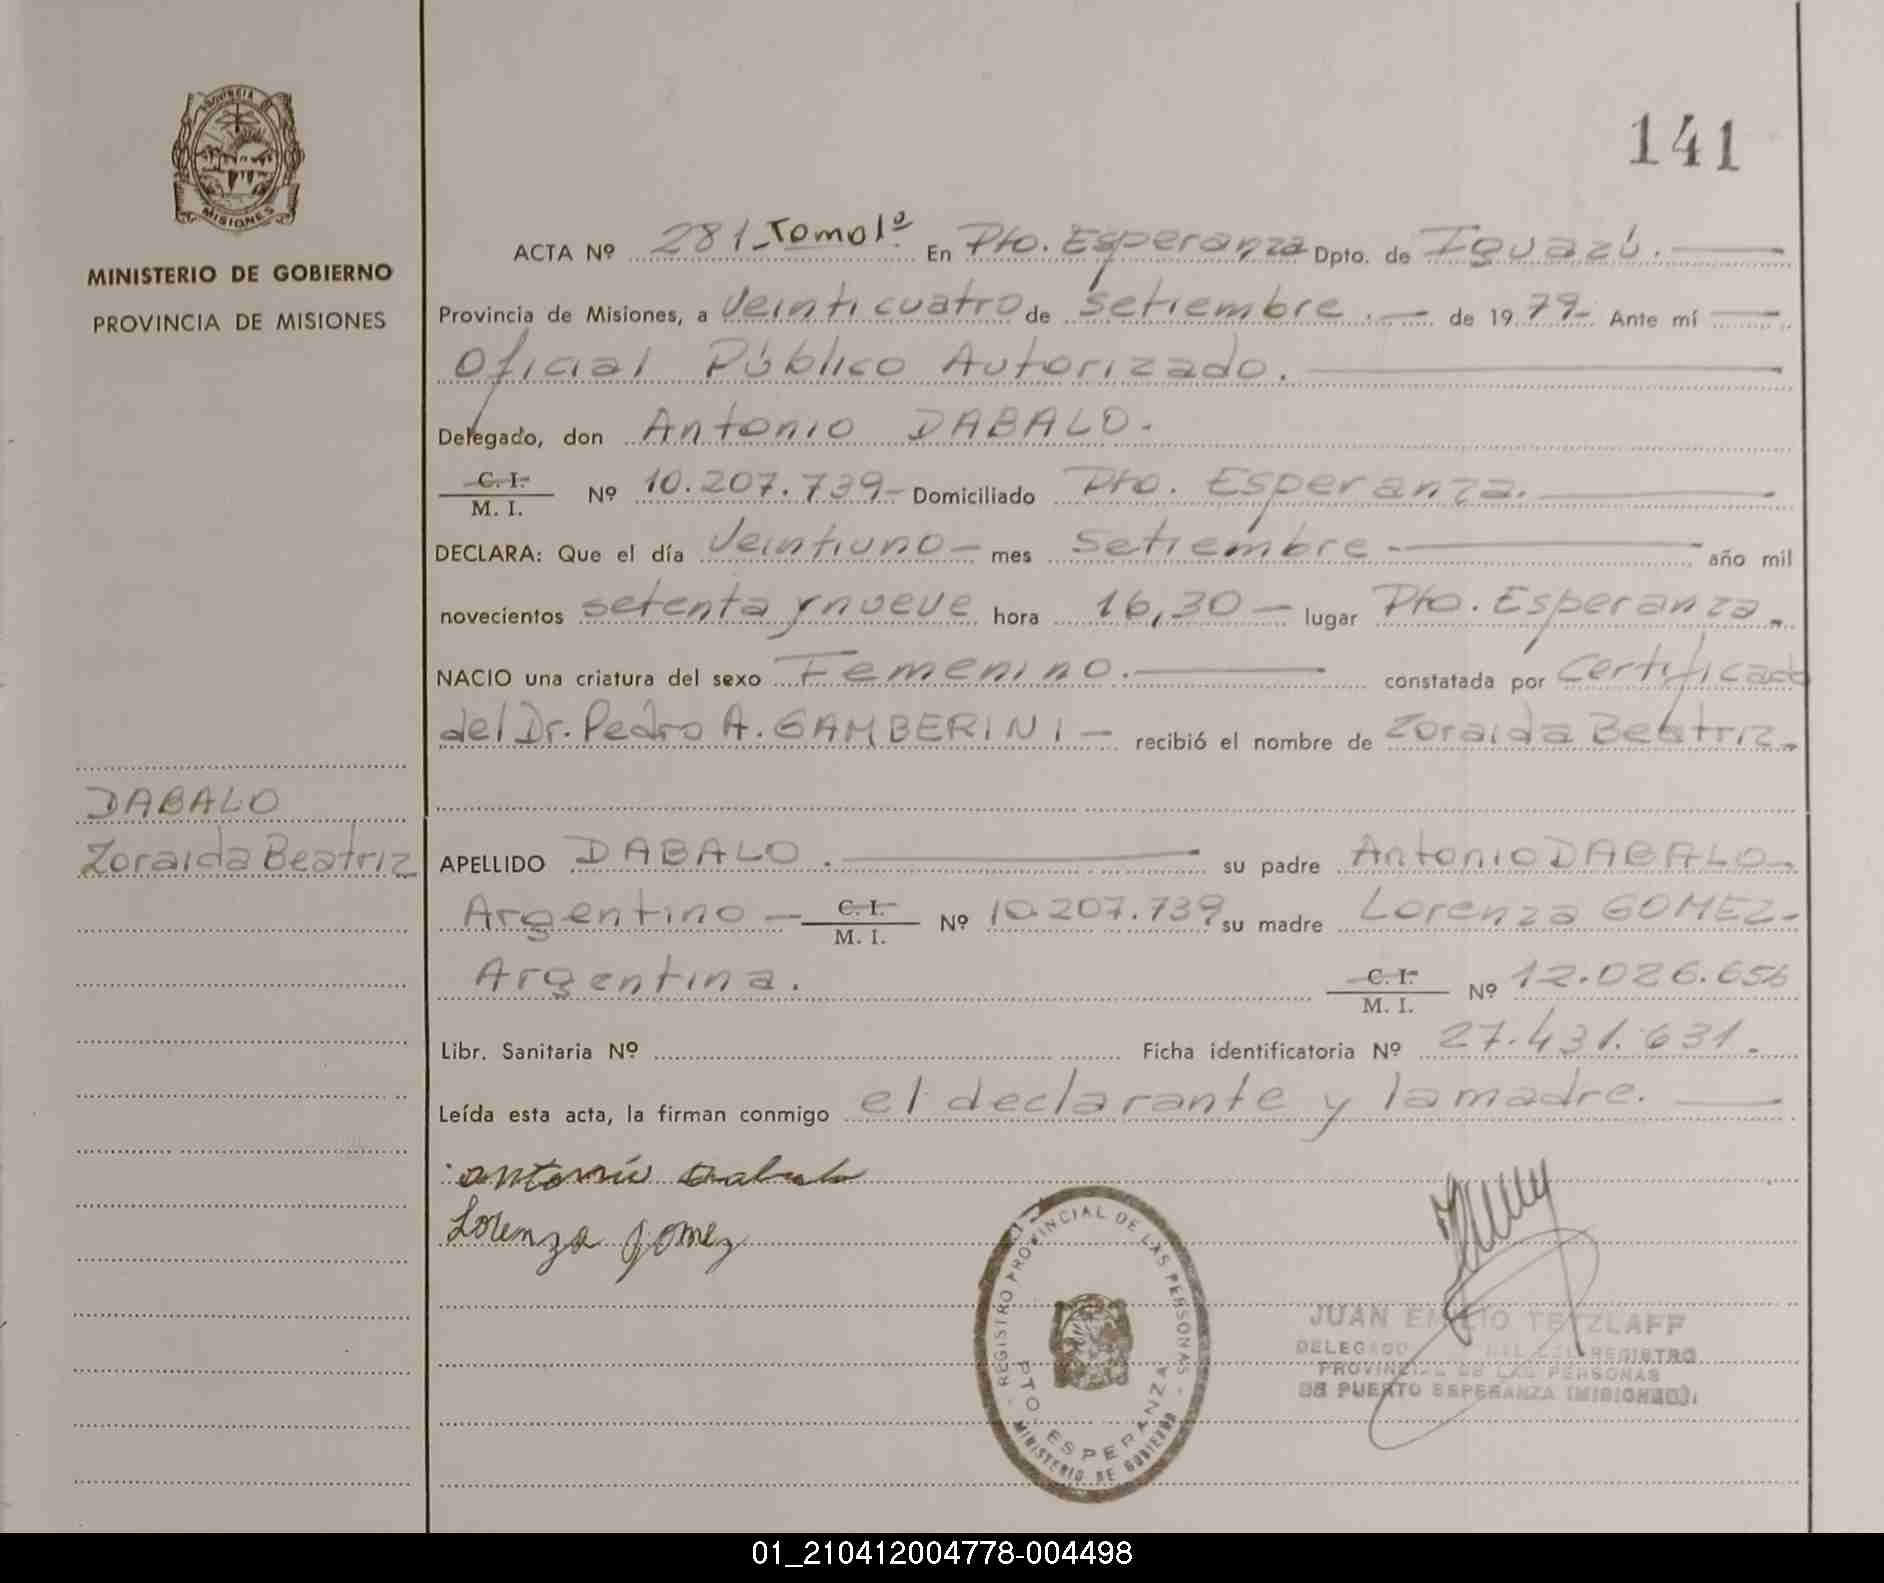 141
PROVINCIA DE
MISIONES
MINISTERIO DE GOBIERNO
PROVINCIA DE MISIONES
ACTA Nº 281-Tomo 1º En Pto. Esperanza Dpto. de Iguazú.
Provincia de Misiones, a Veinticuatro de Setiembre.- de 1979- Ante mí
Oficial Público Autorizado.
Delegado, don Antonio DABALO.
C. I. / M. I. Nº 10.207.739- Domiciliado Pto. Esperanza.
DECLARA: Que el día Veintiuno- mes Setiembre- año mil
novecientos setenta y nueve hora 16,30- lugar Pto. Esperanza.
NACIO una criatura del sexo Femenino. constatada por Certificado
del Dr. Pedro A. GAMBERINI- recibió el nombre de Zoraida Beatriz.
DABALO
Zoraida Beatriz
APELLIDO DABALO. su padre Antonio DABALO-
Argentino- C. I. / M. I. Nº 10.207.739 su madre Lorenza GOMEZ-
Argentina. C. I. / M. I. Nº 12.026.656
Libr. Sanitaria Nº Ficha identificatoria Nº 27.431.631.
Leída esta acta, la firman conmigo el declarante y la madre.
Antonio Dabalo
Lorenza Gomez
REGISTRO PROVINCIAL DE LAS PERSONAS
PTO ESPERANZA
MINISTERIO DE GOBIERNO
JUAN EMILIO TETZLAFF
DELEGADO DEL REGISTRO
PROVINCIAL DE LAS PERSONAS
DE PUERTO ESPERANZA (MISIONES)
01_210412004778-004498